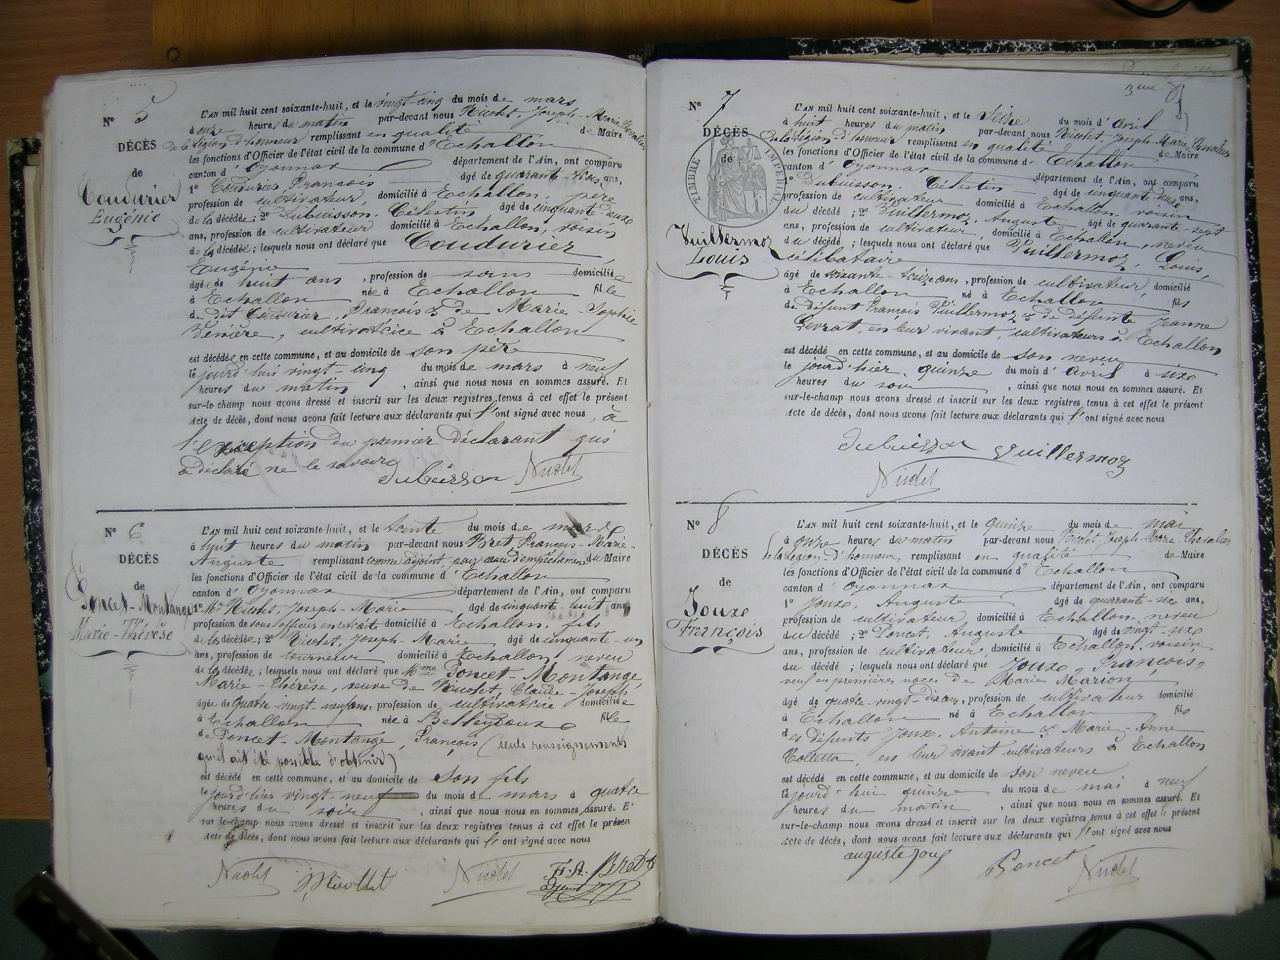 N° 5
DÉCÈS
de
Coudurier
Eugénie
L'AN mil huit cent soixante-huit, et le vingt-cinq du mois de mars
à onze heures du matin par-devant nous Nicolet, Joseph-Marie, Chevalier
de la légion d'honneur remplissant en qualité de Maire
les fonctions d'Officier de l'état civil de la commune d'Echallon
canton d'Oyonnax département de l'Ain, ont comparu
1° Coudurier François âgé de quarante ans,
profession de cultivateur, domicilié à Echallon, père
de la décédée; 2° Dubuisson, Célestin âgé de cinquante deux
ans, profession de cultivateur domicilié à Echallon, voisin
de la décédée; lesquels nous ont déclaré que Coudurier
Eugénie
âgée de huit ans, profession de sans domiciliée
à Echallon née à Echallon fille
du dit Coudurier, François & de Marie Sophie
cultivatrice à Echallon
est décédée en cette commune, et au domicile de son père
le jourd'hui vingt-cinq du mois de mars à neuf
heures du matin, ainsi que nous nous en sommes assuré. Et
sur-le-champ nous avons dressé et inscrit sur les deux registres tenus à cet effet le présent
acte de décès, dont nous avons fait lecture aux déclarants qui l'ont signé avec nous, à
l'exception du premier déclarant qui
a déclaré ne le savoir
Dubuisson Nicolet
N° 6
DÉCÈS
de
Poncet-Montange
Marie-Thérèse
L'AN mil huit cent soixante-huit, et le trente du mois de mars
à huit heures du matin par-devant nous Bret François-Marie-
Auguste remplissant comme adjoint du Maire
les fonctions d'Officier de l'état civil de la commune d'Echallon
canton d'Oyonnax département de l'Ain, ont comparu
1° Mr Nicolet, Joseph-Marie âgé de cinquante huit ans,
profession de sous officier en retraite domicilié à Echallon, fils
de la décédée; 2° Nicolet, Joseph-Marie âgé de cinquante un
ans, profession de tourneur domicilié à Echallon neveu
de la décédée; lesquels nous ont déclaré que Mme Poncet-Montange,
Marie-Thérèse, veuve de Nicolet, Claude-Joseph,
âgée de quatre vingt neuf ans, profession de cultivatrice domiciliée
à Echallon née à Belleydoux fille
de Poncet-Montange, François (seuls renseignements
qu'il ait été possible d'obtenir)
est décédée en cette commune, et au domicile de son fils
le jourd'hier vingt neuf du mois de mars à quatre
heures du soir, ainsi que nous nous en sommes assuré. Et
sur-le-champ nous avons dressé et inscrit sur les deux registres tenus à cet effet le présent
acte de décès, dont nous avons fait lecture aux déclarants qui l'ont signé avec nous
Nicolet J M Nicollet Nicolet F. A. Bret
N° 7
DÉCÈS
de
TIMBRE IMPÉRIAL
Vuillermoz
Louis
L'AN mil huit cent soixante-huit, et le seize du mois d'avril
à huit heures du matin par-devant nous Nicolet, Joseph-Marie, Chevalier
de la légion d'honneur remplissant en qualité de Maire
les fonctions d'Officier de l'état civil de la commune d'Echallon
canton d'Oyonnax département de l'Ain, ont comparu
1° Dubuisson, Célestin âgé de cinquante deux
profession de cultivateur domicilié à Echallon voisin
du décédé; 2° Vuillermoz, Auguste âgé de quarante-sept
ans, profession de cultivateur, domicilié à Echallon, neveu
du décédé; lesquels nous ont déclaré que Vuillermoz, Louis,
célibataire
âgé de soixante-seize ans, profession de cultivateur, domicilié
à Echallon né à Echallon fils
de défunt François Vuillermoz & de défunte Jeanne
Levrat en leur vivant, cultivateurs à Echallon
est décédé en cette commune, et au domicile de son neveu
le jourd'hier, quinze du mois d'avril à six
heures du soir, ainsi que nous nous en sommes assuré. Et
sur-le-champ nous avons dressé et inscrit sur les deux registres tenus à cet effet le présent
acte de décès, dont nous avons fait lecture aux déclarants qui l'ont signé avec nous
Dubuisson Vuillermoz
Nicolet
N° 8
DÉCÈS
de
Joux
François
L'AN mil huit cent soixante-huit, et le quinze du mois de mai
à onze heures du matin par-devant nous Nicolet, Joseph-Marie Chevalier
de la légion d'honneur, remplissant en qualité de Maire
les fonctions d'Officier de l'état civil de la commune d'Echallon
canton d'Oyonnax département de l'Ain, ont comparu
1° Joux, Auguste âgé de quarante-six ans,
profession de cultivateur, domicilié à Echallon, neveu
du décédé; 2° Poncet, Auguste âgé de vingt-six
ans, profession de cultivateur, domicilié à Echallon, voisin
du décédé; lesquels nous ont déclaré que Joux, François,
veuf en premières noces de Marie Marion
âgé de quatre-vingt-dix ans, profession de cultivateur domicilié
à Echallon né à Echallon fils
de défunts Joux, Antoine & Marie Anne
Colletta, en leur vivant cultivateurs à Echallon
est décédé en cette commune, et au domicile de son neveu
le jourd'hui quinze du mois de mai à neuf
heures du matin, ainsi que nous nous en sommes assuré. Et
sur-le-champ nous avons dressé et inscrit sur les deux registres tenus à cet effet le présent
acte de décès, dont nous avons fait lecture aux déclarants qui l'ont signé avec nous
auguste Joux Poncet Nicolet